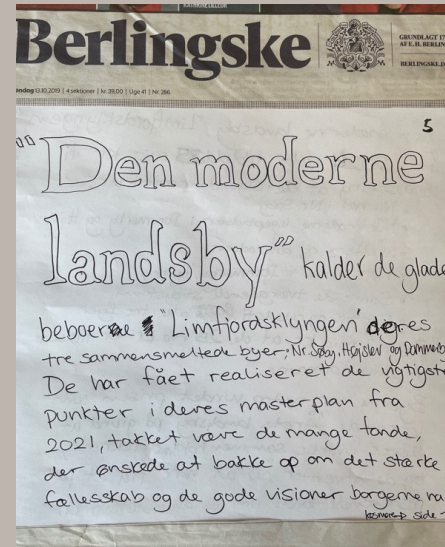 Berlingske
GRUNDLAGT 17
AF E. H. BERLIN
BERLINGSKE.
søndag 13.10.2019 | 4 sektioner | kr. 39,00 | Uge 41 | Nr. 286
5
"Den moderne
landsby" kalder de glade
beboerne "Limfjordsklyngen' deres
tre sammensmeltede byer; Nr. Søby, Højslev og Dommerb
De har fået realiseret de vigtigste
punkter i deres masterplan fra
2021, takket være de mange fonde,
der ønskede at bakke op om det stærke
fællesskab og de gode visioner borgerne ha
læs mere på side